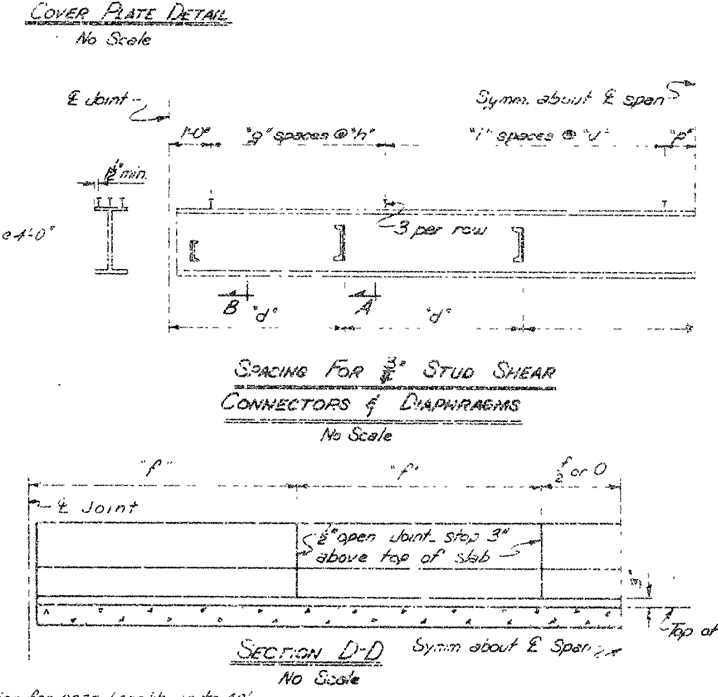 COVER PLATE DETAIL
No Scale
℄ Joint
Symm. about ℄ span
1'-0"
"g" spaces @ "h"
"i" spaces @ "J"
"p"
1½" min.
@ 4'-0"
3 per row
B
A
"d"
"d"
SPACING FOR ¾" STUD SHEAR
CONNECTORS & DIAPHRAGMS
No Scale
"f"
"f"
f/2 or 0
℄ Joint
½" open Joint_ stop 3"
above top of slab
Top of
SECTION D-D
Symm about ℄ Span
No Scale